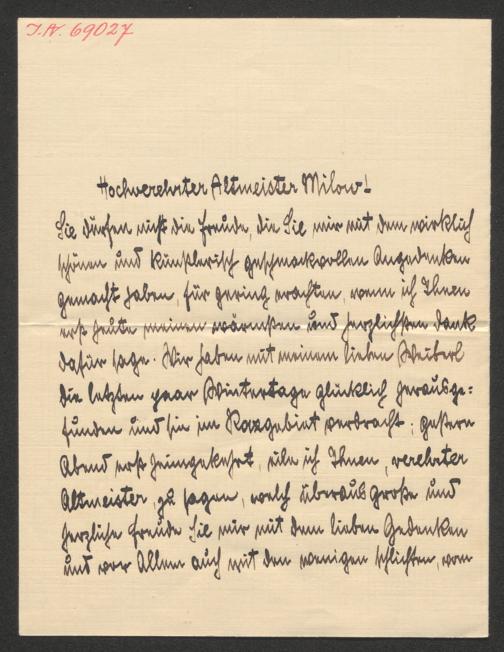 I.N. 69027
Hochverehrter Altmeister Milow!
Sie dürfen nicht die Freude, die Sie mir mit dem wirklich
schönen und künstlerisch geschmackvollen Angedenken
gemacht haben, für gering erachten, wenn ich Ihnen
erst heute meinen wärmsten und herzlichsten Dank
dafür sage. Wir haben mit meinem lieben Weiberl
die letzten paar Wintertage glücklich herausge=
funden und sie im Raxgebiet verbracht; gestern
Abend erst heimgekehrt, eile ich Ihnen, verehrter
Altmeister, zu sagen, welch überaus große und
herzliche Freude Sie mir mit dem lieben Gedenken
und vor Allem auch mit den wenigen schlichten, vom